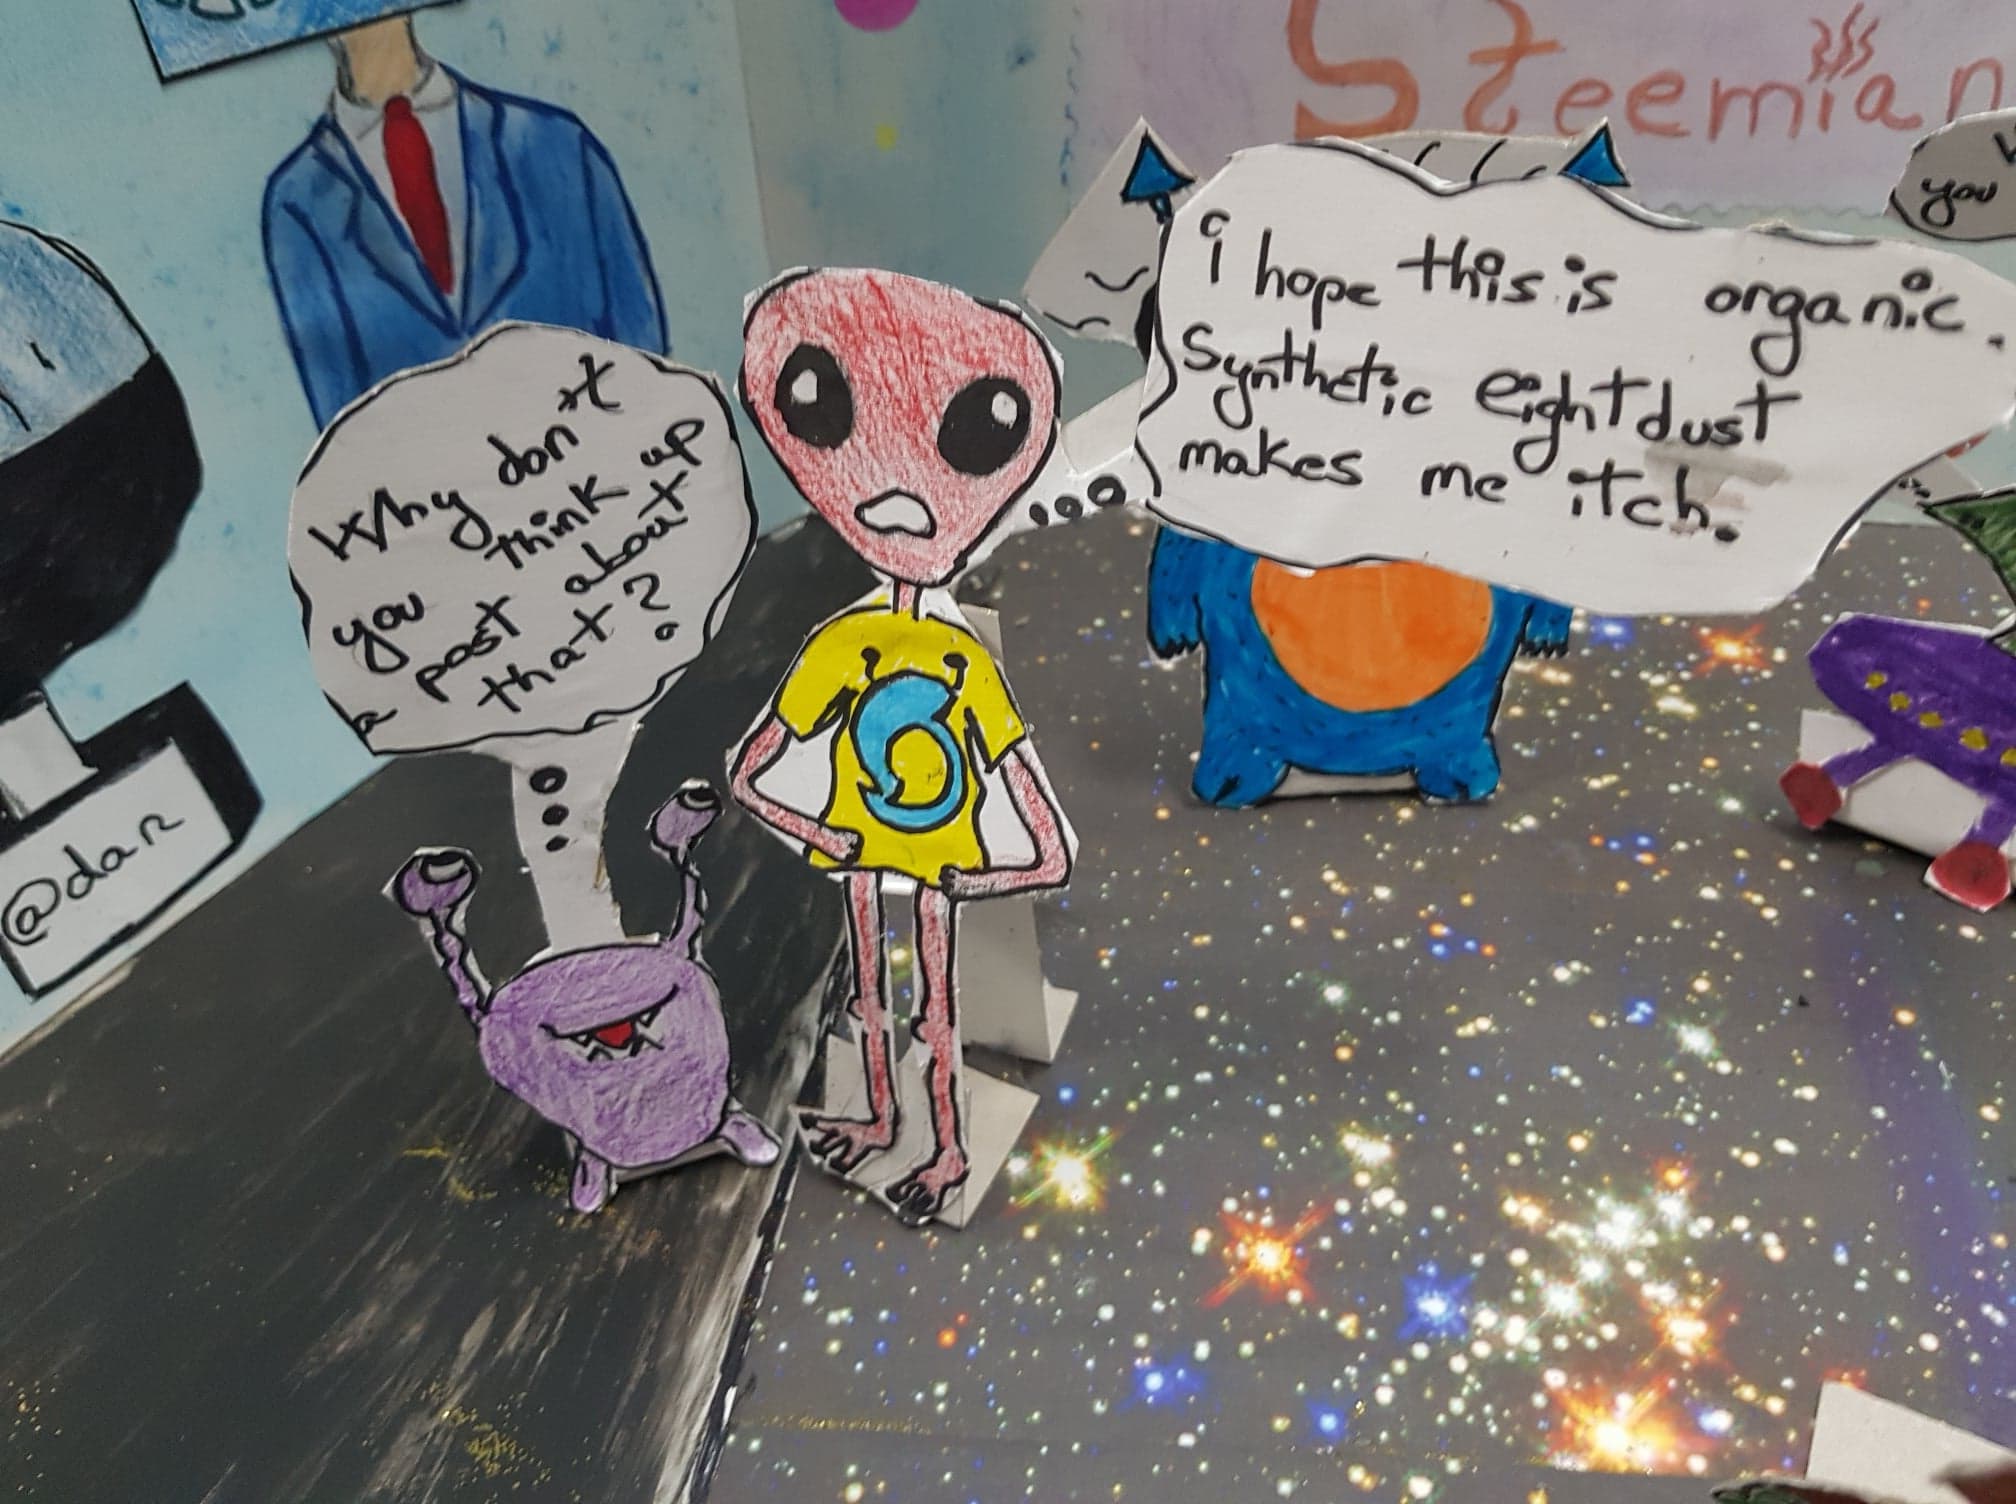 Steemian
you
i hope this is organic.
Synthetic eightdust
makes me itch.
Why don't
you think up
a post about
that?
@dan